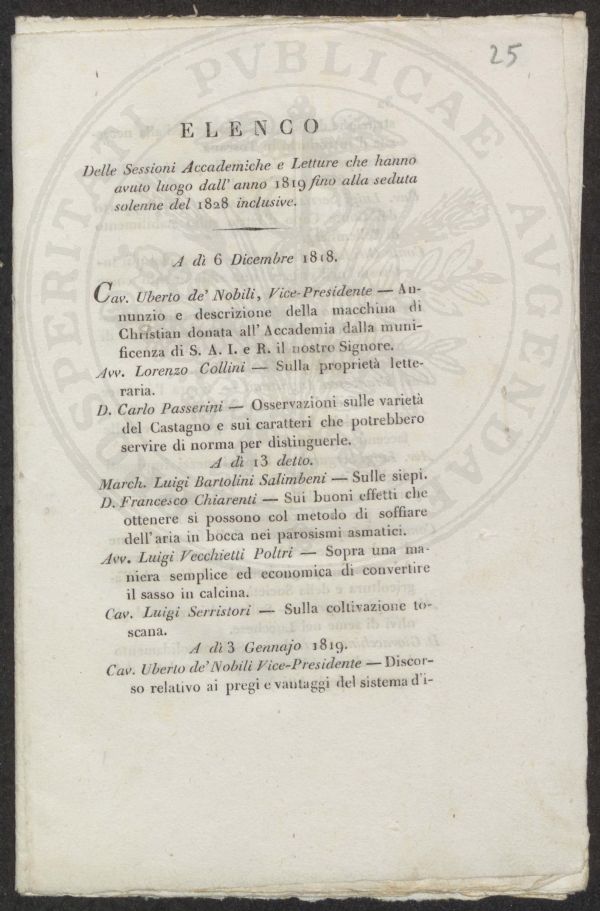 25
PROSPERITATI PVBLICAE AVGENDAE
ELENCO
Delle Sessioni Accademiche e Letture che hanno
avuto luogo dall' anno 1819 fino alla seduta
solenne del 1828 inclusive.
A dì 6 Dicembre 1818.
Cav. Uberto de' Nobili, Vice-Presidente — An-
nunzio e descrizione della macchina di
Christian donata all' Accademia dalla muni-
ficenza di S. A. I. e R. il nostro Signore.
Avv. Lorenzo Collini — Sulla proprietà lette-
raria.
D. Carlo Passerini — Osservazioni sulle varietà
del Castagno e sui caratteri che potrebbero
servire di norma per distinguerle.
A dì 13 detto.
March. Luigi Bartolini Salimbeni — Sulle siepi.
D. Francesco Chiarenti — Sui buoni effetti che
ottenere si possono col metodo di soffiare
dell' aria in bocca nei parosismi asmatici.
Avv. Luigi Vecchietti Poltri — Sopra una ma-
niera semplice ed economica di convertire
il sasso in calcina.
Cav. Luigi Serristori — Sulla coltivazione to-
scana.
A dì 3 Gennajo 1819.
Cav. Uberto de' Nobili Vice-Presidente — Discor-
so relativo ai pregi e vantaggi del sistema d'i-